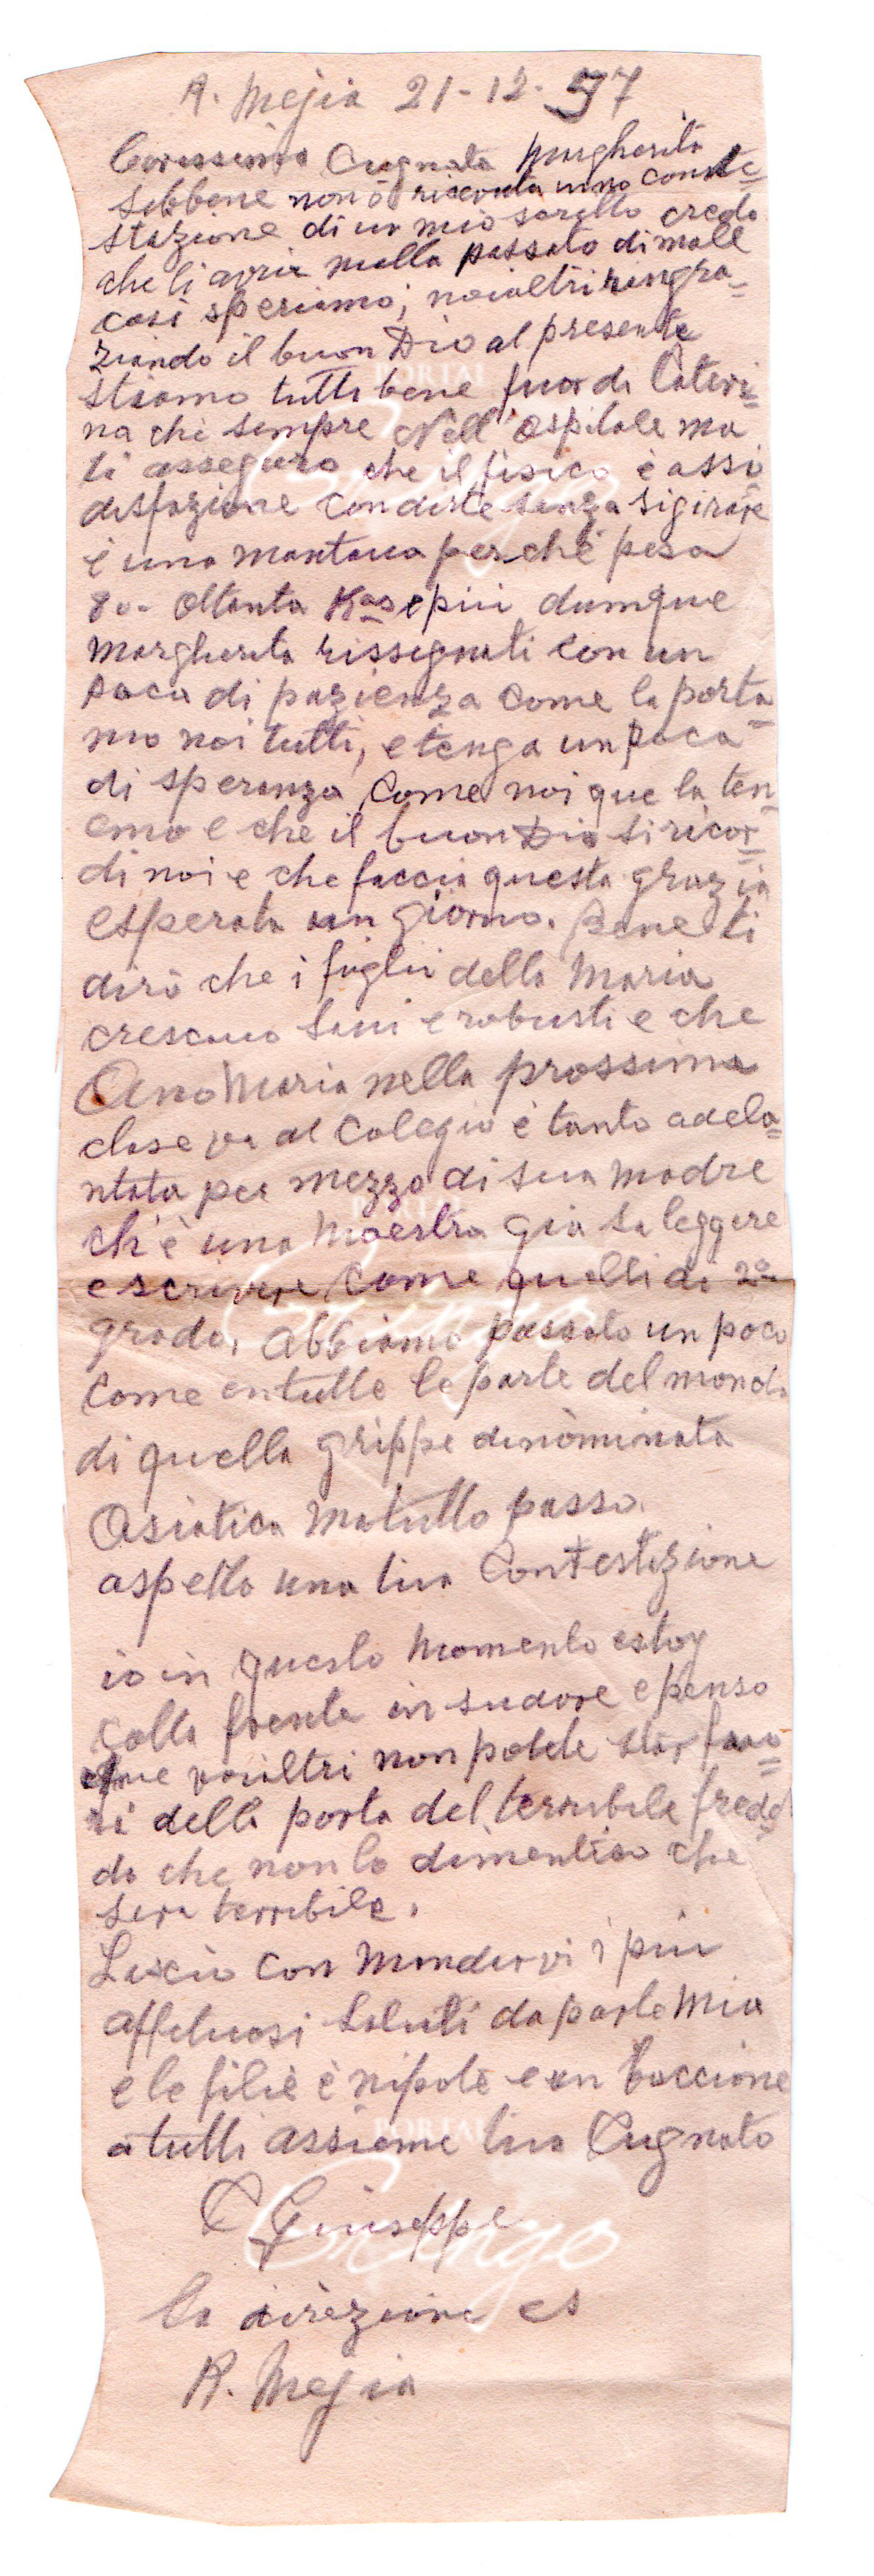 A. Mejia 21-12-57
Carissima Cugnata Margherita
sebbene non ò ricevuta una conte=
stazione di un mio scritto credo
che ti avrà nulla passato di male
così speriamo; noialtri rangra=
ziando il buon Dio al presente
stiamo tutti bene fuor di Cateri=
na chè sempre Nell' ospitale ma
ti asseguro che il fisico è assi
disfazione con dirte senza
è una montaua perchè pesa
80- ottanta Kgs e più dumque
Margherita rissegnati con un
poca di pazienza come la porta=
mo noi tutti, e tenga un poca
di speranza come noi que la ten=
emo e che il buon Dio si ricor=
di noi e che faccia questa grazia
esperata un giorno. Bene ti
dirò che i figlii della Maria
crescano sani e robusti e che
Ana Maria nella prossima
clase va al Colegio è tanto adela=
ntata per mezzo di sua madre
ch'è una Maestra gia sa leggere
e scrivere come quelli di 2º
grado. Abbiamo passato un poco
come en tutte le parte del mondo
di quella grippe denòminata
Asiatica ma tutto passo.
aspetto una tua Contestazione
io in questo momento estoy
colla frente in sudore e penso
que voialtri non potete star fuo=
ri della porta del terribile fred=
do che non lo dimentico che
sera terribile.
Lascio con mandarvi i più
affetuosi saluti da parte mia
e le filie è nipote e un baccione
a tutti assieme tuo Cugnato
C Giuseppe
la direzione es
A. Mejia
PORTAL
Gringo